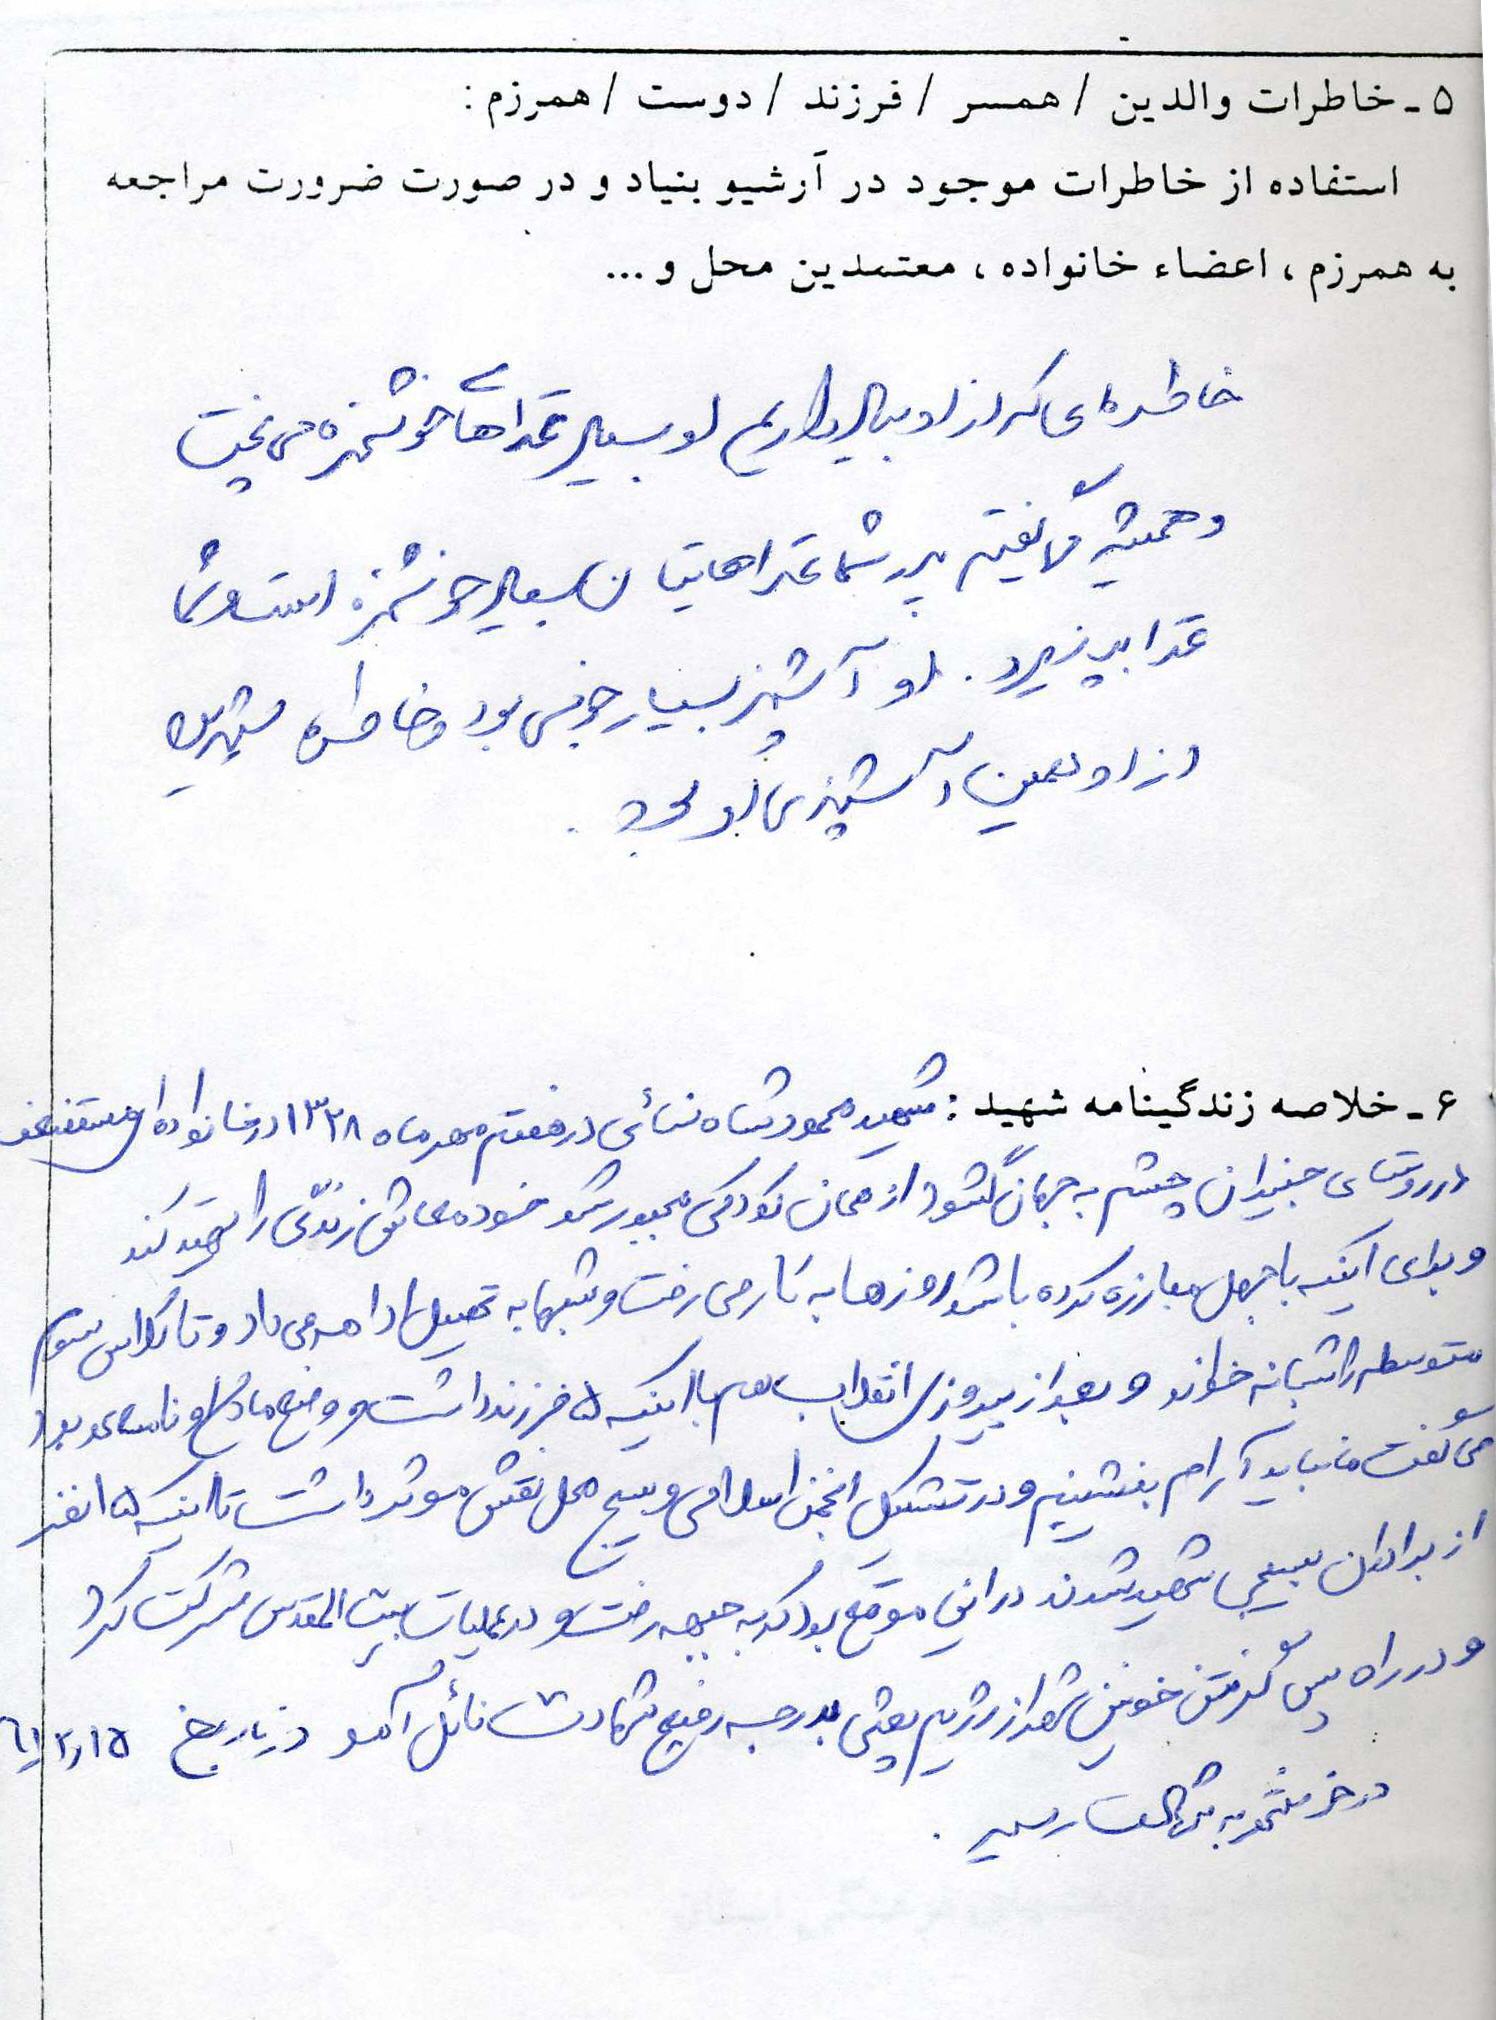 ۵ - خاطرات والدین / همسر / فرزند / دوست / همرزم :
استفاده از خاطرات موجود در آرشیو بنیاد و در صورت ضرورت مراجعه
به همرزم ، اعضاء خانواده ، معتمدین محل و ...
خاطره ای که از او بیاد داریم او بسیار غذاهای خوشمزه می پخت
و همیشه می گفتیم پدر شما غذاهایتان بسیار خوشمزه است و شما
غذا بپزید . او آشپز بسیار خوبی بود و خاطره شیرین
از او همین آشپزی او بود .
۶ - خلاصه زندگینامه شهید : شهید محمود شاه سنائی در هفتم مهرماه ۱۳۲۸ در خانواده ای مستضعف
در روستای جنیران چشم به جهان گشود از همان کودکی مجبور شد خود معاش زندگی را تهیه کند
و برای اینکه با جهل مبارزه کرده باشد روزها به کار می رفت و شبها به تحصیل ادامه می داد و تا کلاس سوم
متوسطه را شبانه خواند و بعد از پیروزی انقلاب هم با اینکه ۵ فرزند داشت و وضع مادی او نامساعد بود
می گفت ما نباید آرام بنشینیم و در تشکیل انجمن اسلامی و بسیج محل نقش موثر داشت تا اینکه ۱۵ نفر
از برادران بسیجی شهید شدند در این موقع بود که به جبهه رفت و در عملیات بیت المقدس شرکت کرد
و در راه پس گرفتن خونین شهر از رژیم بعثی به درجه رفیع شهادت نائل آمد در تاریخ ۶۱٫۲٫۱۵
در خرمشهر به شهادت رسید .